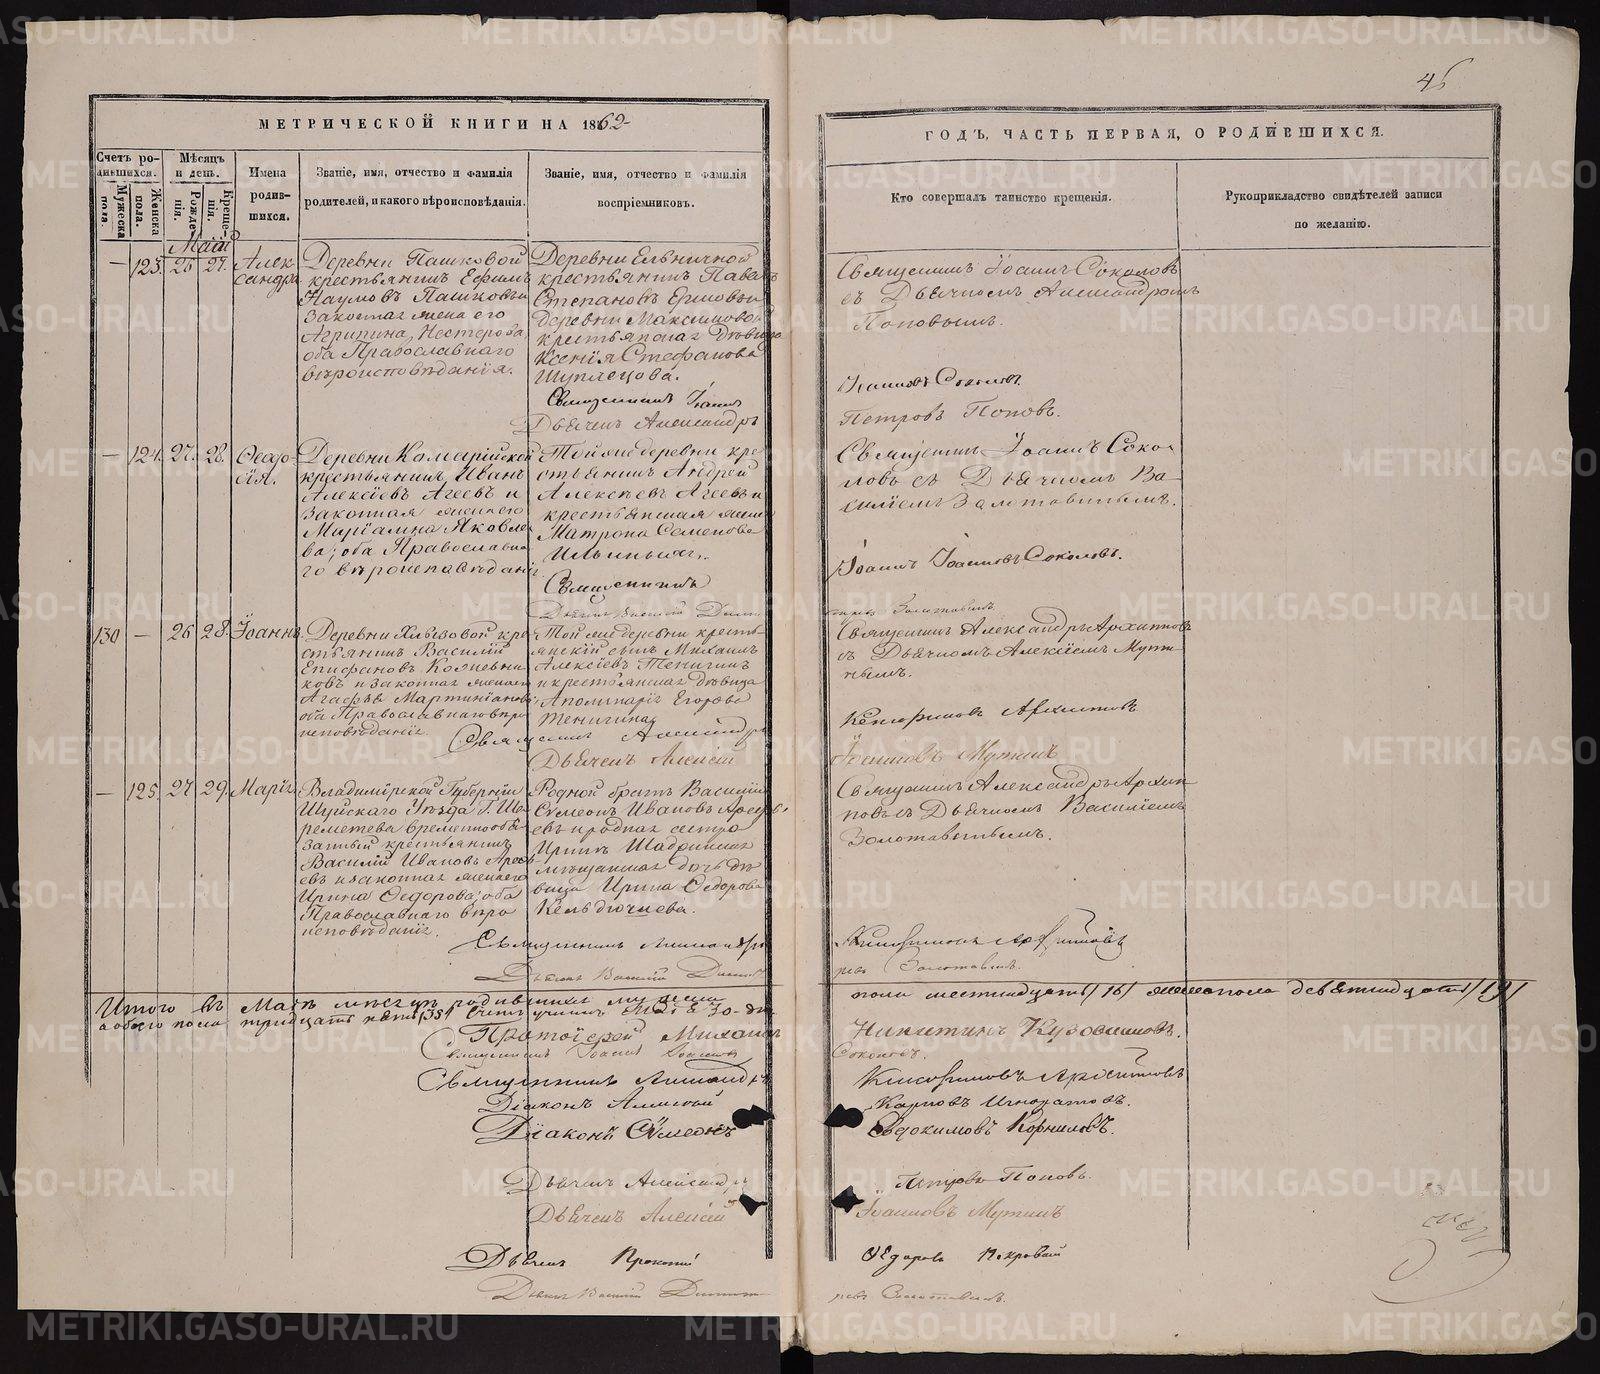 46
МЕТРИЧЕСКОЙ КНИГИ НА 1862
ГОДЪ, ЧАСТЬ ПЕРВАЯ, О РОДИВШИХСЯ.
Счетъ родившихся.
Мужеска пола.
Женска пола.
Мѣсяцъ и день.
Рожденія.
Крещенія.
Имена родившихся.
Званіе, имя, отчество и фамилія
родителей, и какого вѣроисповѣданія.
Званіе, имя, отчество и фамилія
воспріемниковъ.
Кто совершалъ таинство крещенія.
Рукоприкладство свидѣтелей записи
по желанію.
Май
— 123. 26 27. Александра
Деревни Пашковой
крестьянинъ Ефимъ
Наумовъ Пашковъ и
законная жена его
Агрипина Нестерова,
оба Православнаго
вѣроисповѣданія.
Деревни Ельничной
крестьянинъ Павелъ
Степановъ Ершовъ и
деревни Максимовой
крестьянская дѣвица
Ксенія Стефанова
Священникъ Іоаннъ
Дьячекъ Александръ
Священникъ Іоаннъ Соколовъ
съ Дьячкомъ Александромъ
Поповымъ.
Іоанновъ Соколовъ.
Петровъ Поповъ.
— 124. 27. 28. Ѳеодосія.
крестьянинъ Иванъ
Алексіевъ Агеевъ и
законная жена его
Маріамна Яковлева;
оба Православнаго
вѣроисповѣданія.
Той же деревни крестьянинъ Андрей
Алексіевъ Агеевъ и
крестьянская жена
Матрона Семенова
Ильиныхъ.
Священникъ
Дьячекъ Василій
Священникъ Іоаннъ Соколовъ
съ Дьячкомъ Василіемъ
Золотавинымъ.
Іоаннъ Іоанновъ Соколовъ.
Золотавинъ.
130 — 26 28. Іоаннъ.
крестьянинъ Василій
Епифановъ
и законная жена его
Агафья Мартиніанова;
оба Православнаго вѣроисповѣданія.
Той же деревни крестьянскій сынъ Михаилъ
Алексіевъ Тенигинъ
и крестьянская дѣвица
Аполинарія Егорова
Тенигина
Священникъ Александръ
Дьячекъ Алексій
Священникъ Александръ Архиповъ
съ Дьячкомъ Алексіемъ Мутинымъ.
Ксенофонтовъ Архиповъ
Іоанновъ Мутинъ
— 125. 27 29. Марія
Владимірской Губерніи
Шуйскаго Уѣзда Г. Шереметева временнообязанный крестьянинъ
Василій Ивановъ
и законная жена его
Ирина Ѳедорова; оба
Православнаго вѣроисповѣданія.
Родной братъ Василія
Симеонъ Ивановъ
и родная сестра
Ирины Шадринская
мѣщанская дочь дѣвица Ирина Ѳедорова
Священникъ Александръ
Дьячекъ Василій
Священникъ Александръ Архиповъ съ Дьячкомъ Василіемъ
Золотавинымъ.
Ксенофонтовъ Архиповъ
Золотавинъ.
Итого въ Маѣ мѣсяцѣ родившихся мужеска
пола шестнадцать /16/ женска пола девятнадцать /19/
а обоего пола тридцать пять /35/
Протоіерей Михаилъ
Никитинъ
Священникъ Іоаннъ Іоанновъ
Соколовъ.
Священникъ Александръ
Ксенофонтовъ Архиповъ
Діаконъ Алексій
Карповъ Игнатовъ.
Діаконъ Симеонъ
Евдокимовъ Корниловъ.
Дьячекъ Александръ
Петровъ Поповъ.
Дьячекъ Алексій
Іоанновъ Мутинъ
Дьячекъ Прокопій
Ѳедоровъ
Дьячекъ Василій
METRIKI.GASO-URAL.RU